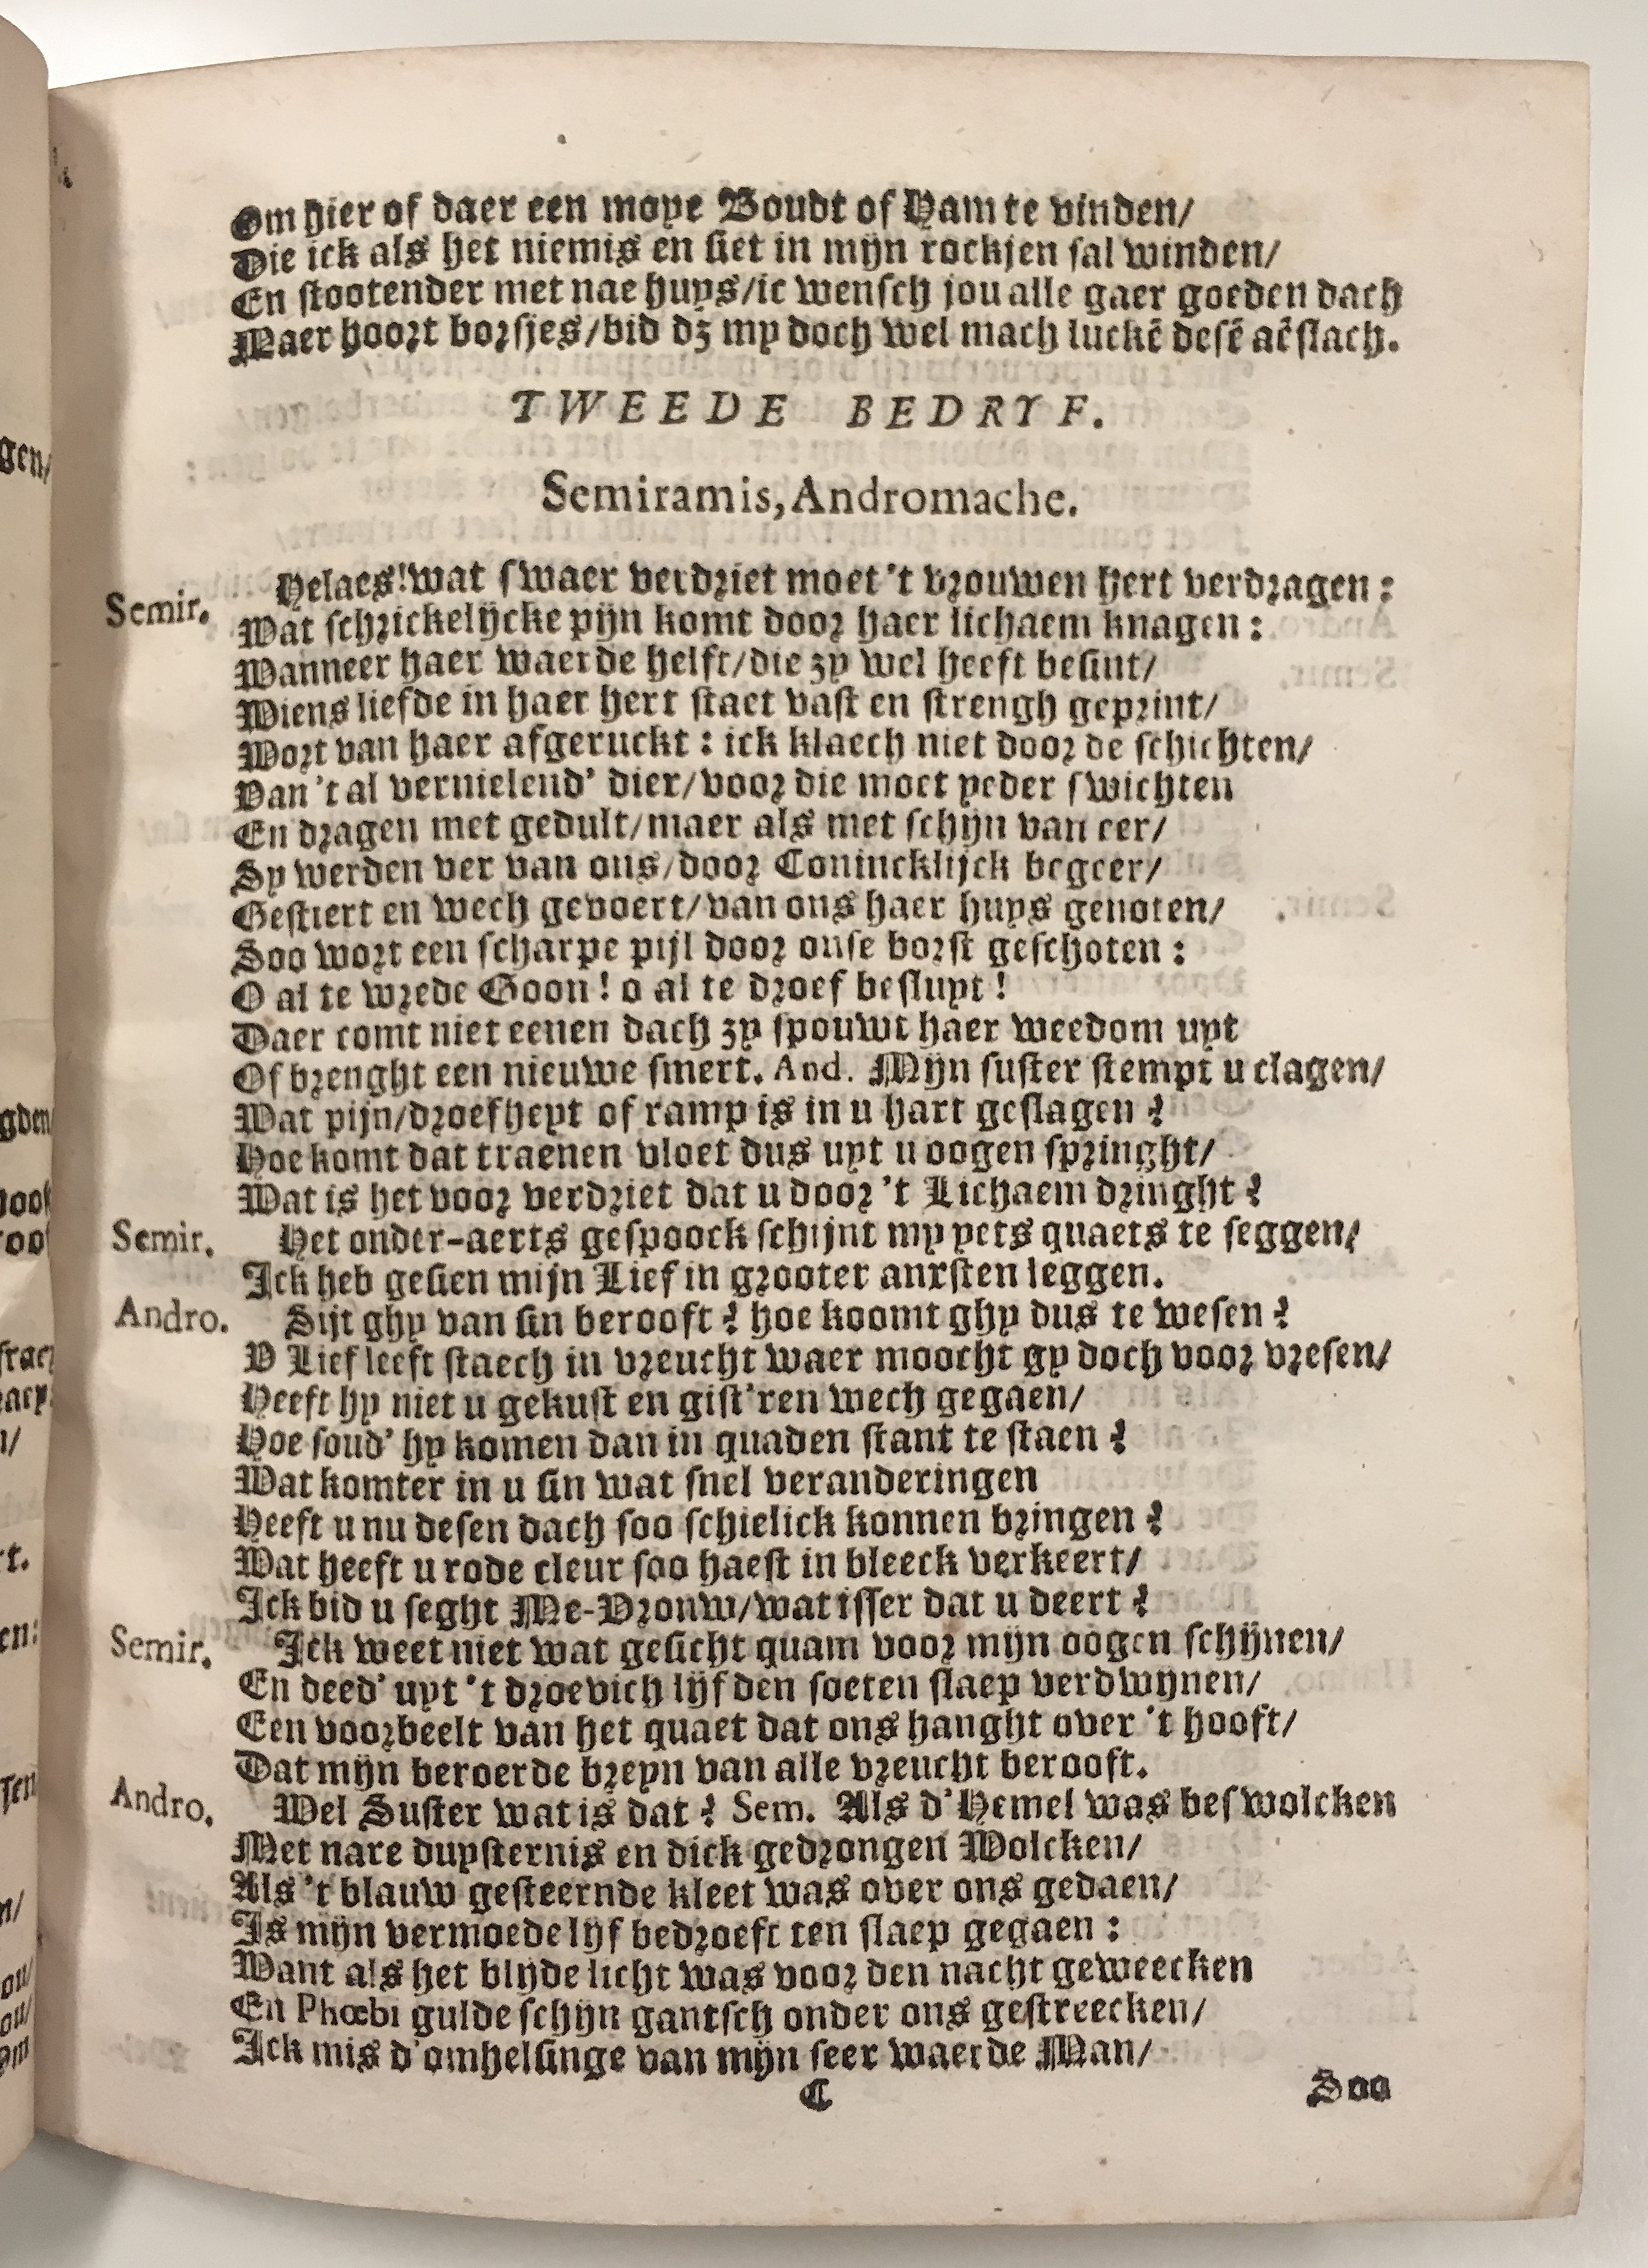 Om hier of daer een moye Boudt of Ham te vinden/
Die ick als het niemis en siet in mijn rockjen sal winden/
En stootender met nae huys/ic wensch jou alle gaer goeden dach
Maer hoort borsjes/bid dz my doch wel mach luckē desē aēslach.
TWEEDE BEDRYF.
Semiramis, Andromache.
Semir. Helaes! wat swaer verdriet moet 't vrouwen hert verdragen:
Wat schrickelijcke pijn komt door haer lichaem knagen:
Wanneer haer waerde helft/die zy wel heeft besint/
Wiens liefde in haer hert staet vast en strengh geprint/
Wort van haer afgeruckt: ick klaech niet door de schichten/
Van 't al vernielend' dier/voor die moet yeder swichten
En dragen met gedult/maer als met schijn van eer/
Sy werden ver van ons/door Conincklijck begeer/
Gestiert en wech gevoert/van ons haer huys genoten/
Soo wort een scharpe pijl door onse borst geschoten:
O al te wrede Goon! o al te droef besluyt!
Daer comt niet eenen dach zy spouwt haer weedom uyt
Of brenght een nieuwe smert. And. Mijn suster stempt u clagen/
Wat pijn/droefheyt of ramp is in u hart geslagen?
Hoe komt dat traenen vloet dus uyt u oogen springht/
Wat is het voor verdriet dat u door 't Lichaem dringht?
Semir. Het onder-aerts gespoock schijnt my yets quaets te seggen/
Ick heb gesien mijn Lief in grooter anxsten leggen.
Andro. Sijt ghy van sin berooft? hoe koomt ghy dus te wesen?
V Lief leeft staech in vreucht waer moocht gy doch voor vresen/
Heeft hy niet u gekust en gist'ren wech gegaen/
Hoe soud' hy komen dan in quaden stant te staen?
Wat komter in u sin wat snel veranderingen
Heeft u nu desen dach soo schielick konnen bringen?
Wat heeft u rode cleur soo haest in bleeck verkeert/
Ick bid u seght Me-Vrouw/wat isser dat u deert?
Semir. Ick weet niet wat gesicht quam voor mijn oogen schijnen/
En deed' uyt 't droevich lijf den soeten slaep verdwijnen/
Een voorbeelt van het quaet dat ons hanght over 't hooft/
Dat mijn beroerde breyn van alle vreucht berooft.
Andro. Wel Suster wat is dat? Sem. Als d'Hemel was beswolcken
Met nare duysternis en dick gedrongen Wolcken/
Als 't blauw gesteernde kleet was over ons gedaen/
Is mijn vermoede lijf bedroeft ten slaep gegaen:
Want als het blijde licht was voor den nacht geweecken
En Phœbi gulde schijn gantsch onder ons gestreecken/
Ick mis d'omhelsinge van mijn seer waerde Man/
C
Soo